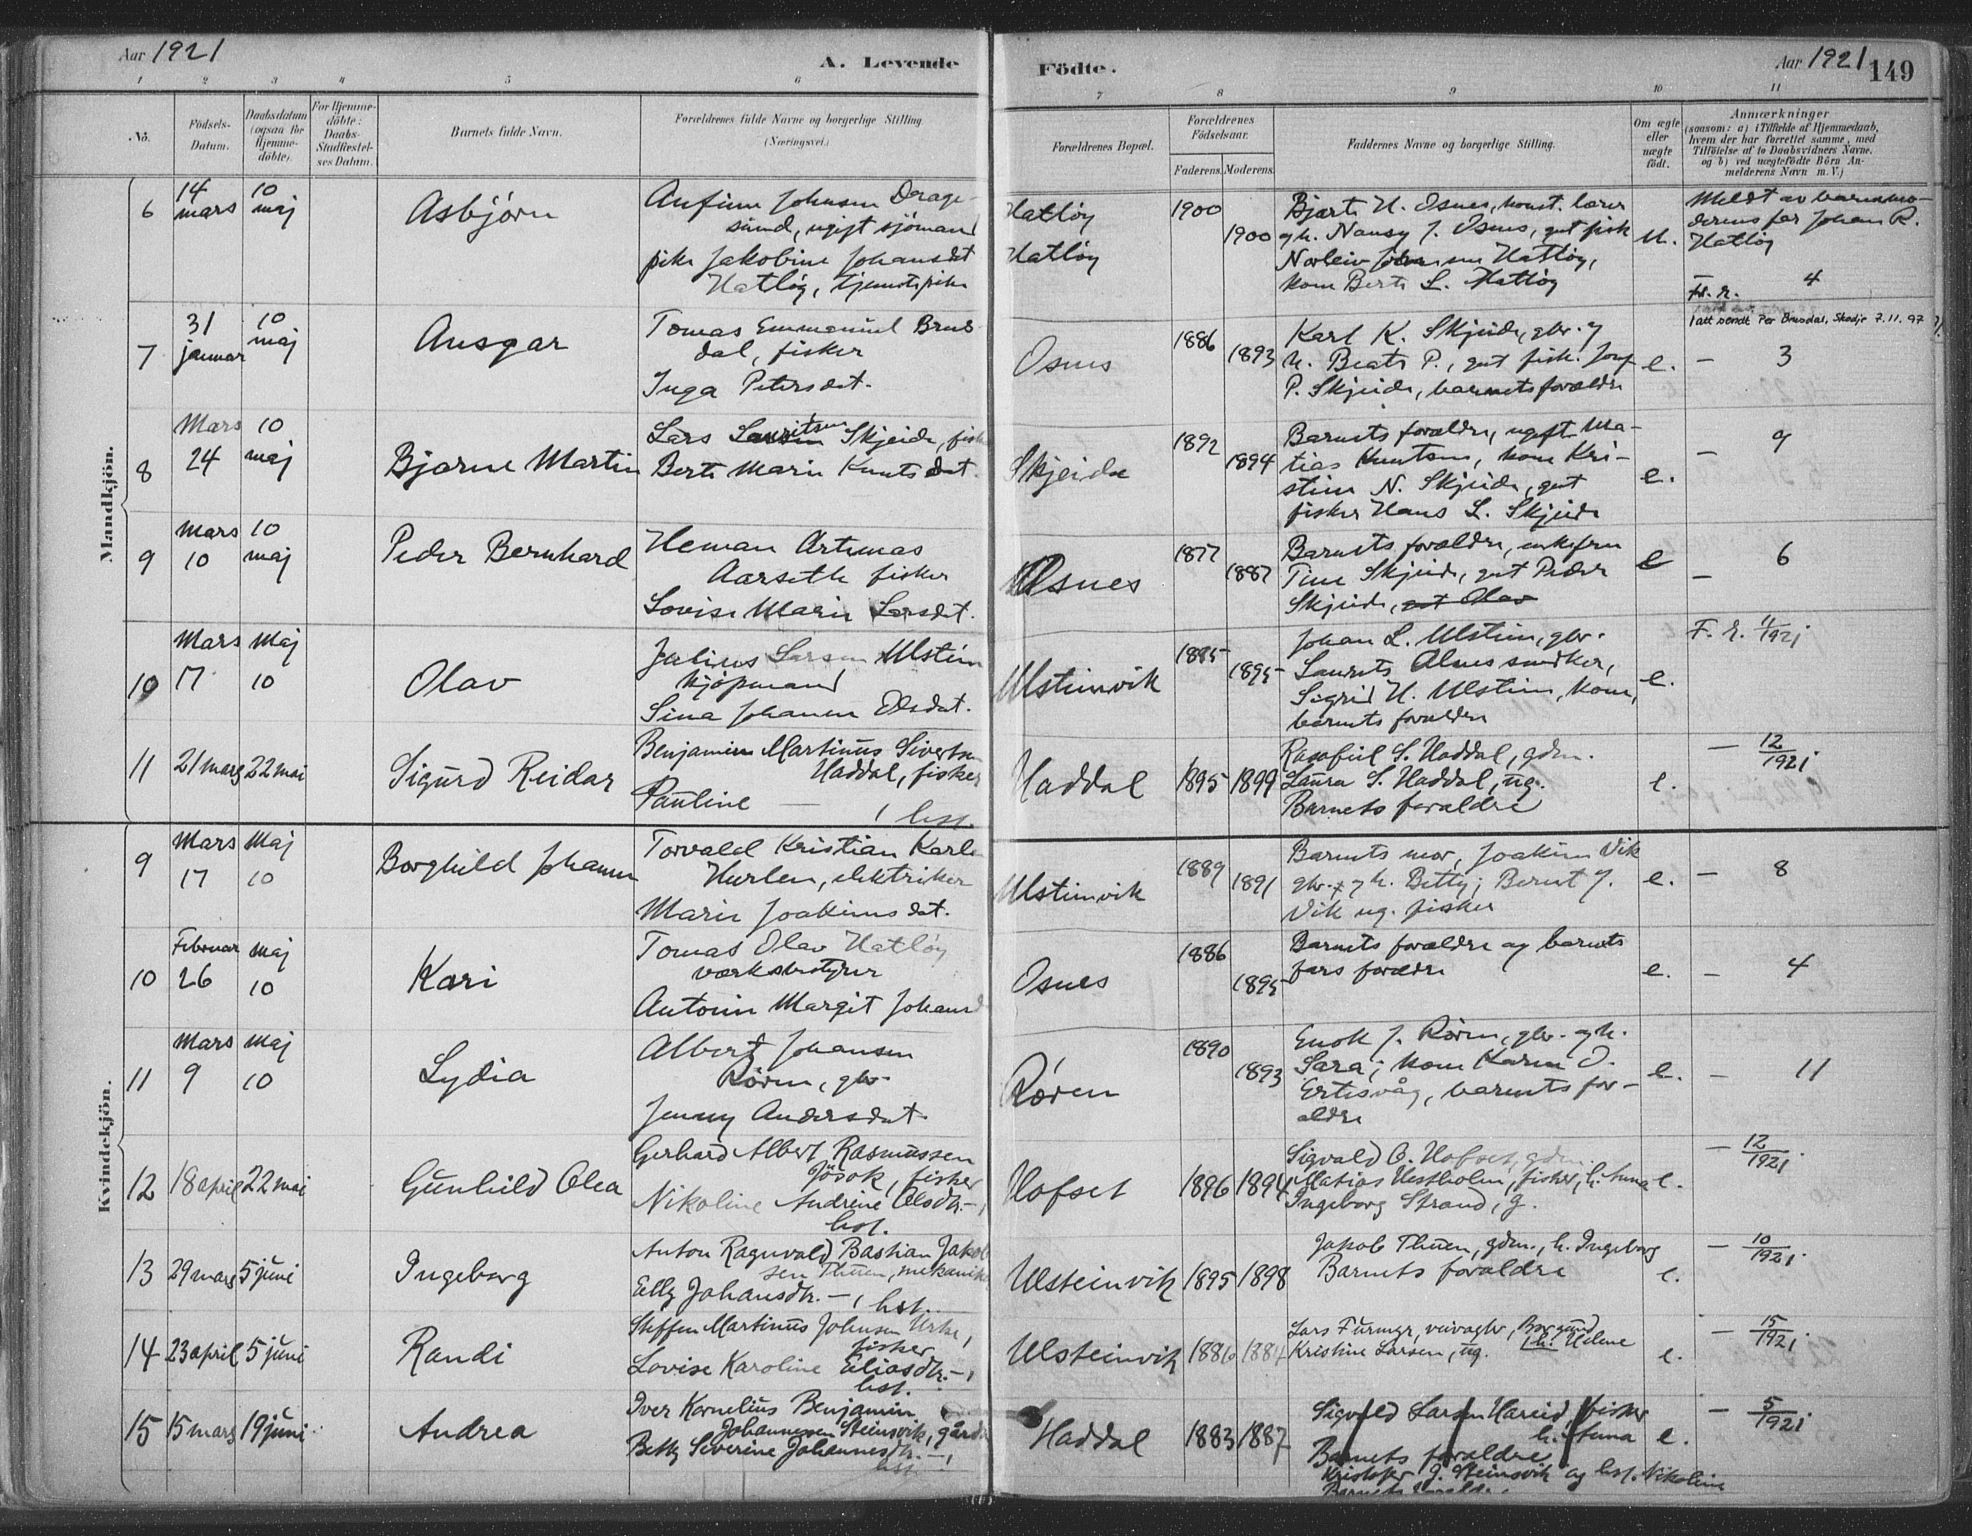 Aar 1921
A. Levende
Födte.
Aar 1921
149
1 2 3 4 5 6 7 8 9 10 11
No.
Födsels-Datum.
Daabsdatum (ogsaa for Hjemme-döbte).
For Hjemme-döbte: Daabs-Stadfæstel-ses Datum.
Barnets fulde Navn.
Forældrenes fulde Navne og borgerlige Stilling
(Næringsvei.)
Forældrenes Bopæl.
Forældrenes Födselsaar.
Faderens. Moderens.
Faddernes Navne og borgerlige Stilling.
Om ægte eller uægte födt.
Anmærkninger
(saasom: a) i Tilfælde af Hjemmedaab,
hvem der har forrettet samme, med
Tilföielse af to Daabsvidners Navne.
og b) ved uægtefödte Börn An-
melderens Navn m. V.)
Mandkjön.
6
14 mars
10 maj
Asbjørn
Anfinn Johnsen Drage-
sund, ugift sjömand
pike Jakobine Johansdat
Hatløy, tjenestepike
Hatløy
Hatløy
1900
1900
Bjarte H. Osnes, konst. lærer
og h. Nansy J. Osnes, gut fisk
Norleiv Hatløy,
kone Berte L. Hatløy
u.
Meldt av barnemo-
derens far Johan R.
Hatløy
F. r. 4
7
31 januar
10 maj
Ansgar
Tomas Emmanuel Brus-
dal, fisker
Inga Petersdat.
Osnes
1886
1893
Karl K. Skjeide, gbr. og
h. Beate P., gut fisk. Josef
P. Skjeide, barnets forældre
e.
Fatt sendt Per Brusdal, Skodje 7.11.97
— 3
8
Mars 24
10 maj
Bjarne Martin
Lars Lauritsen Skjeide, fisk
Berte Marie Knutsdat.
Skjeide
1892
1894
Barnets forældre, ugift Ma-
tias Knutsen, kone Kri-
stine N. Skjeide, gut
fisker Hans L. Skjeide
e.
— 9
9
mars 10
10 maj
Peder Bernhard
Heman Artemas
Aarseth fisker
Lovise Marie Larsdat.
Osnes
1877
1887
Barnets forældre, enkefru
Tine Skjeide, gut Peder
Skjeide, gut Olav
e
— 6
10
Mars 17
Maj 10
Olav
Julius Larsen Ulstein
kjøpmand
Sina Johanne Elsdat.
Ulsteinvik
1885
1895
Johan L. Ulstein, gbr.
Laurits Alnes snedker,
Sigrid H. Ulstein, kone,
barnets forældre
e.
F. r. 11/1921
11
21 mars
22 mai
Sigurd Reidar
Benjamin Martinus Sivertsen
Haddal, fisker
Pauline — , hst.
Haddal
1895
1899
Rasmus S. Haddal, gdm.
Laura S. Haddal, ug.
Barnets foraldre
e.
— 12/1921.
Kvindekjön.
9
Mars 17
Maj 10
Borghild Johanne
Torvald Kristian Karls
Hurlen, elektriker
Marie Joakimsdat.
Ulsteinvik
1889
1891
Barnets mor, Joakim Vik
gbr. og h. Betty; Bernt J.
Vik ug. fisker
e.
— 8
10
Februar 26
Maj 10
Kari
Tomas Olav Hatløy
værksbestyrer
Antonie Margit Johansd
Osnes
1886
1895
Barnets forældre og barnets
fars forældre
e.
— 4
11
Mars 9
Maj 10
Lydia
Albert Johansen
Røren, gbr.
Jenny Andersdat.
Røren
1890
1893
Enok J. Røren, gbr. og h.
Sara; kone Karen O.
Ertesvåg, barnets for-
ældre
e.
— 11
12
18 april
22 mai
Gunhild Olea
Gerhard Albert Rasmussen
Jøsok, fisker
Nikoline Andrine Olsdtr. —,
hst.
Hofset
1896
1894
Sigvald O. Hofset, gdm.
Matias Vestholm, fisker, h. Anna
Ingeborg Strand, g.
e.
— 12/1921.
13
29 mars
5 juni
Ingeborg
Anton Ragnvald Bastian Jakob
sen Thuen, mekanike
Elly Johansdtr. — , hst.
Ulsteinvik
1895
1898
Jakob Thuen, gdm., h. Ingeborg
Barnets foraldre
e.
— 10/1921.
14
23 april
5 juni
Randi
Steffen Martinus Johnsen Urke,
fisker
Lovise Karoline Eliasdtr. —,
hst.
Ulsteinvik
1886
1884
Lars Furmyr, veivagter, Borgund
h. Helene
Kristine Larsen, ug.
e.
— 15/1921.
15
15 mars
19 juni
Andrea
Iver Kornelius Benjamin
Johannessen Steinsvik, gårdm
Betty Severine Johannesdtr. —,
hst.
Haddal
1883
1887
Sigvald Larsen Hareid, fisker
h. Anna
Barnets foraldre
Kristofer J. Steinsvik og hst. Nikoline
Barnets foraldre
e.
— 5/1921.